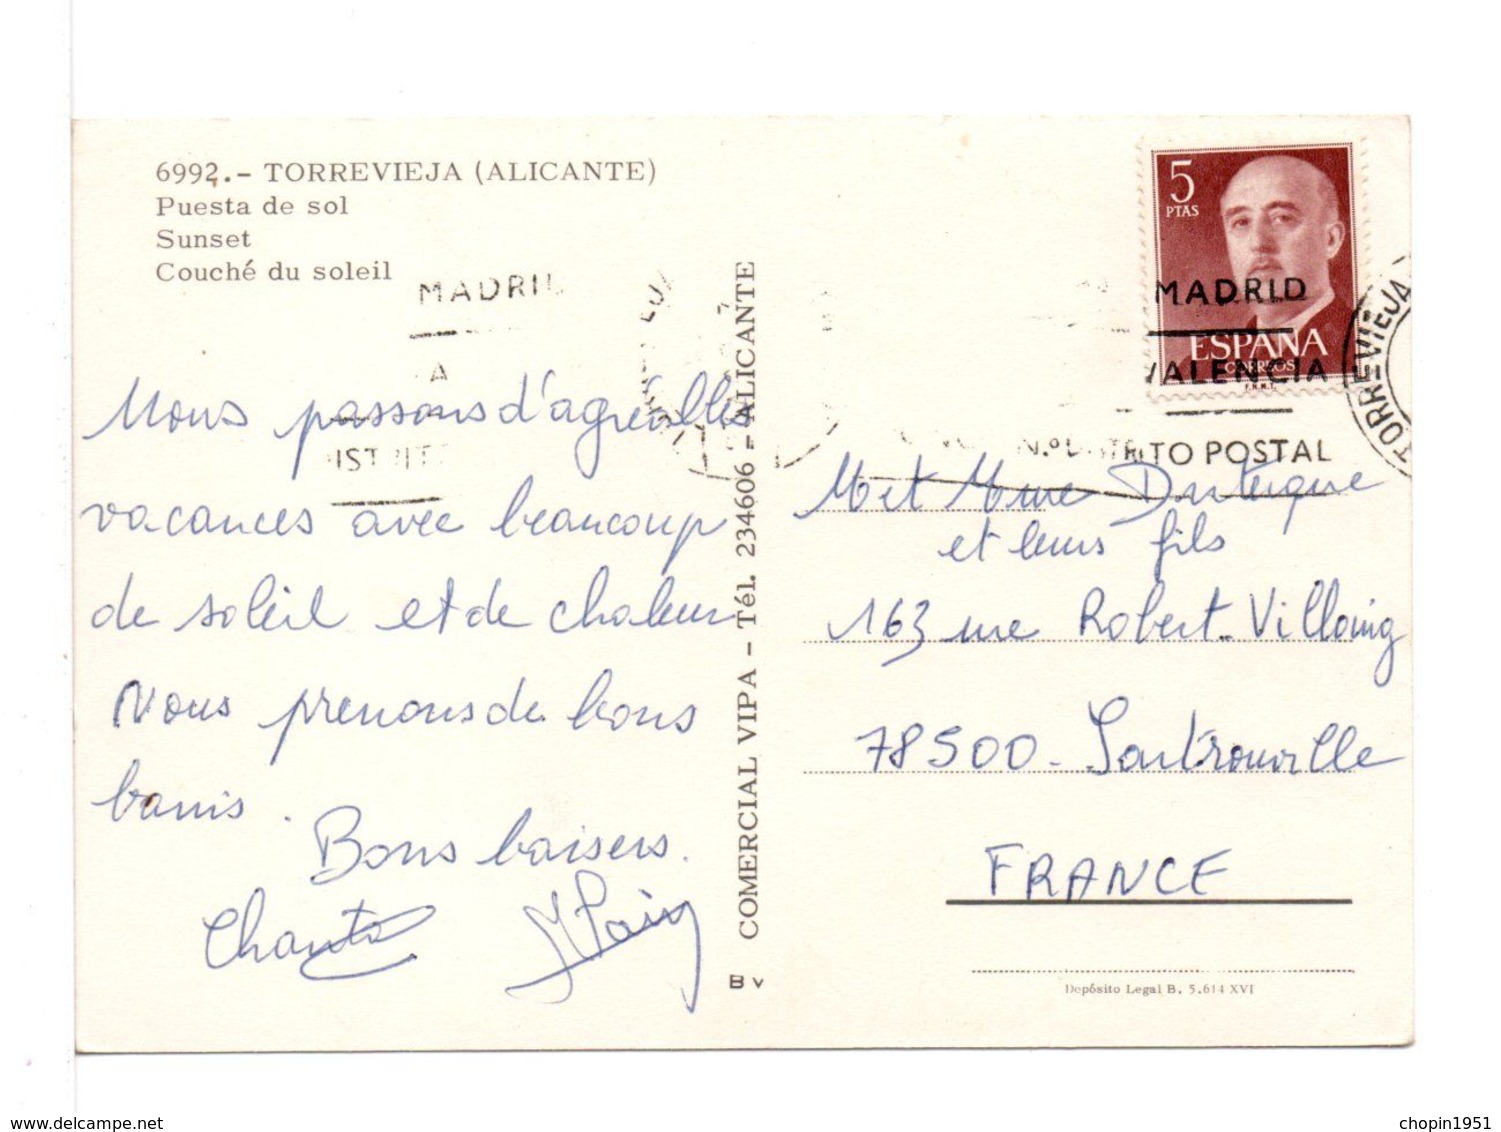 6992.- TORREVIEJA (ALICANTE)
Puesta de sol
Sunset
Couché du soleil
MADRID
A
Nous passons d'agréables
vacances avec beaucoup
de soleil et de chaleur
Nous prenons de bons
bains.
Bons baisers.
Chantal
COMERCIAL VIPA - Tél. 234606 - ALICANTE
B v
5
PTAS
ESPAÑA
CORREOS
F.N.M.T.
MADRID
VALENCIA
N.º DISTRITO POSTAL
TORREVIEJA
M et Mme
et leurs fils
163 rue Robert-Villoing
78500 - Sartrouville
FRANCE
Depósito Legal B. 5.614 XVI
www.delcampe.net
chopin1951